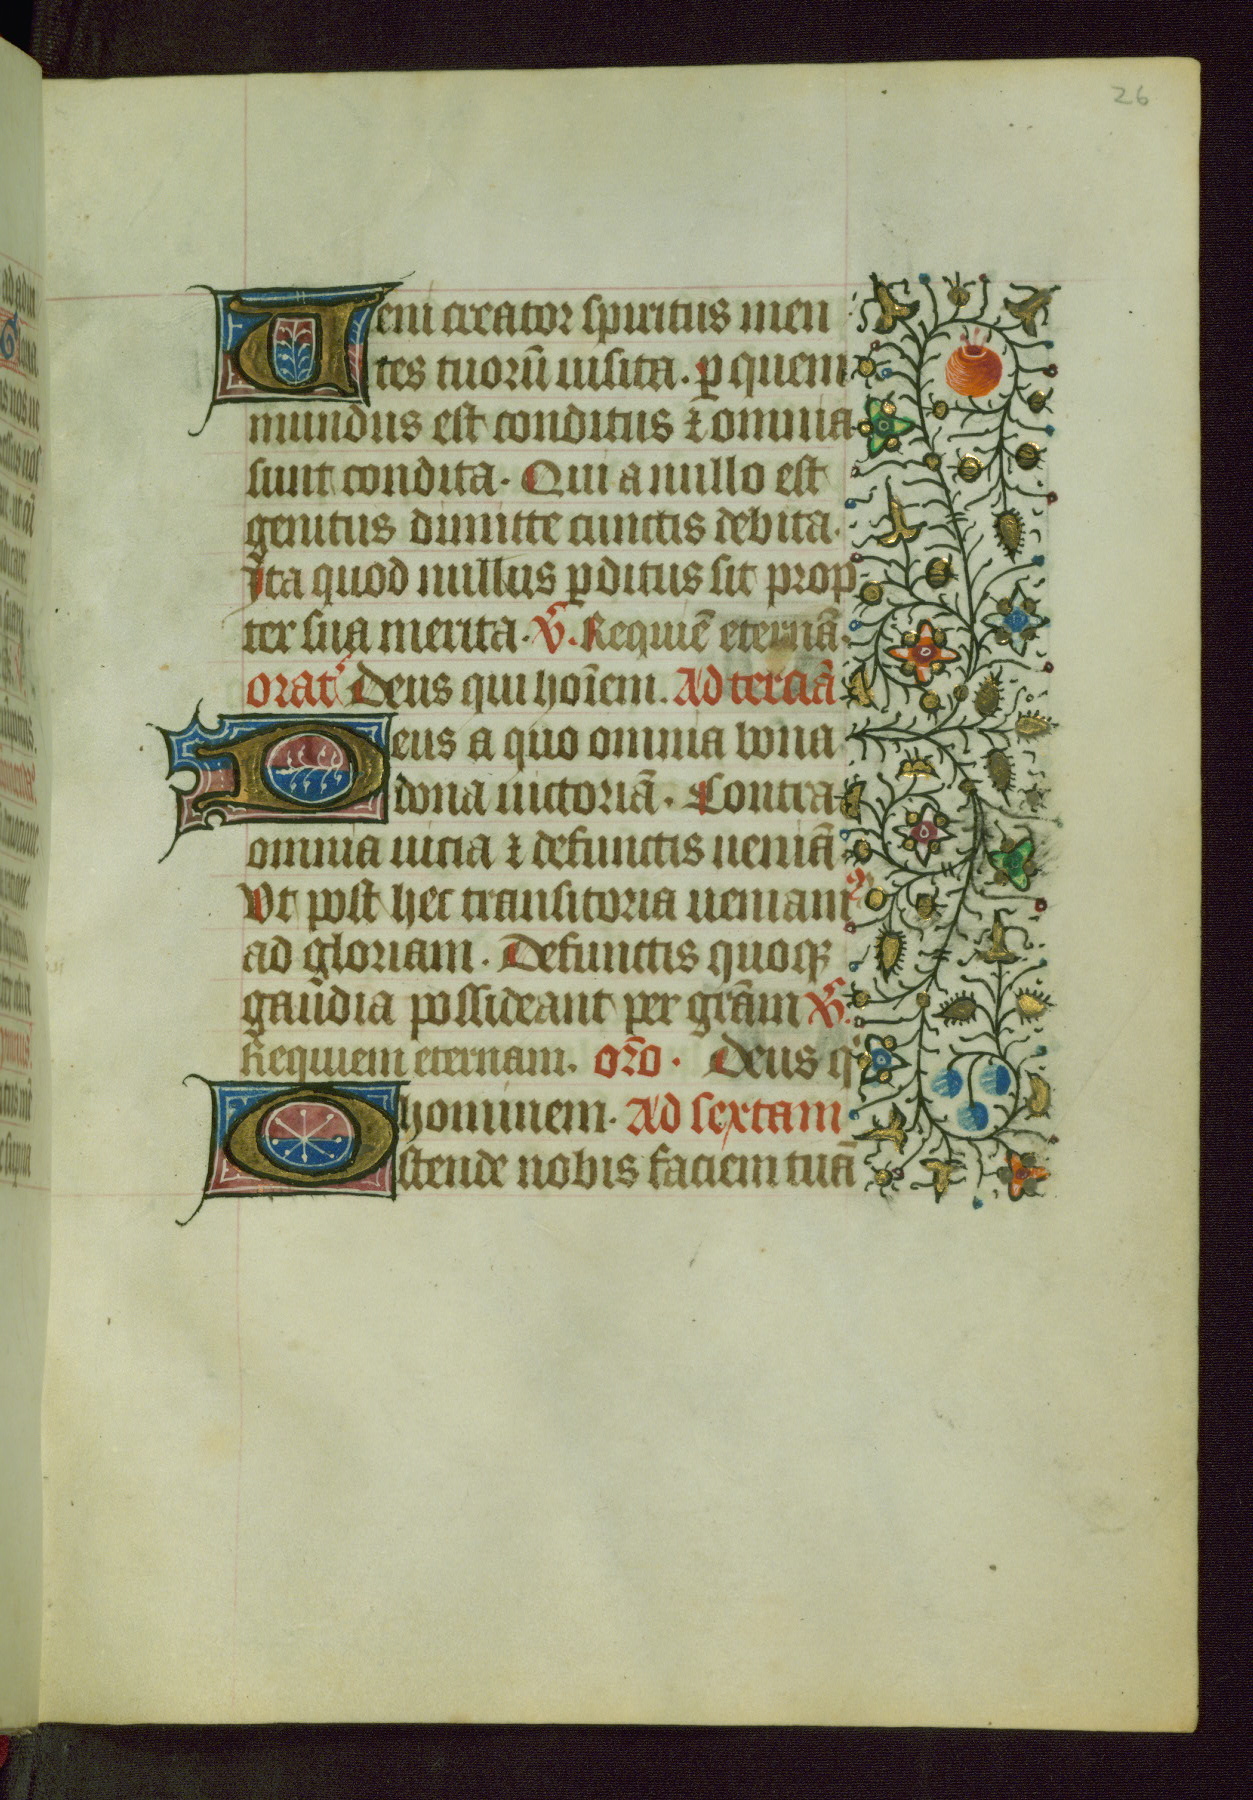 26
Veni creator spiritus men
tes tuorũ uisita. ꝑ quem
mundus est conditus ⁊ omnia
sunt condita. Qui a nullo est
genitus dimitte cunctis debita.
Ita quod nullus ꝑditus sit prop
ter sua merita. V̄. Requiē eternā.
orat̾ Deus qui hoīem. Ad terciā
Deus a quo omnia bona
dona uictoriā. Contra
omnia uicia ⁊ defunctis ueniā
Vt post hec transitoria ueniamꝰ
ad gloriam. Defunctis quoqꝫ
gaūdia possideant per grãm V̄.
Requiem eternam. orō. Deus q
hominem. Ad sextam
Ostende nobis faciem tuā